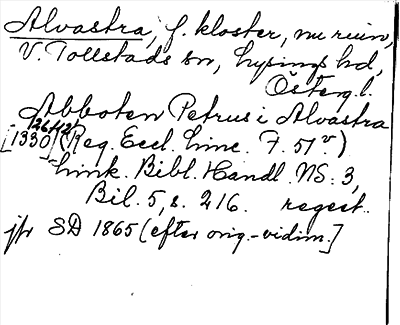 Alvastra, f. kloster, nu ruin,
V. Tollstads sn, Lysings hd,
Österg.l.
Abboten Petrus i Alvastra
[1330 26/12 (Reg. Eccl. Linc. F. 51v)
Link. Bibl. Handl. NS. 3,
Bil. 5, s. 216. regest.
jfr SD 1865 (efter orig.-vidim.]